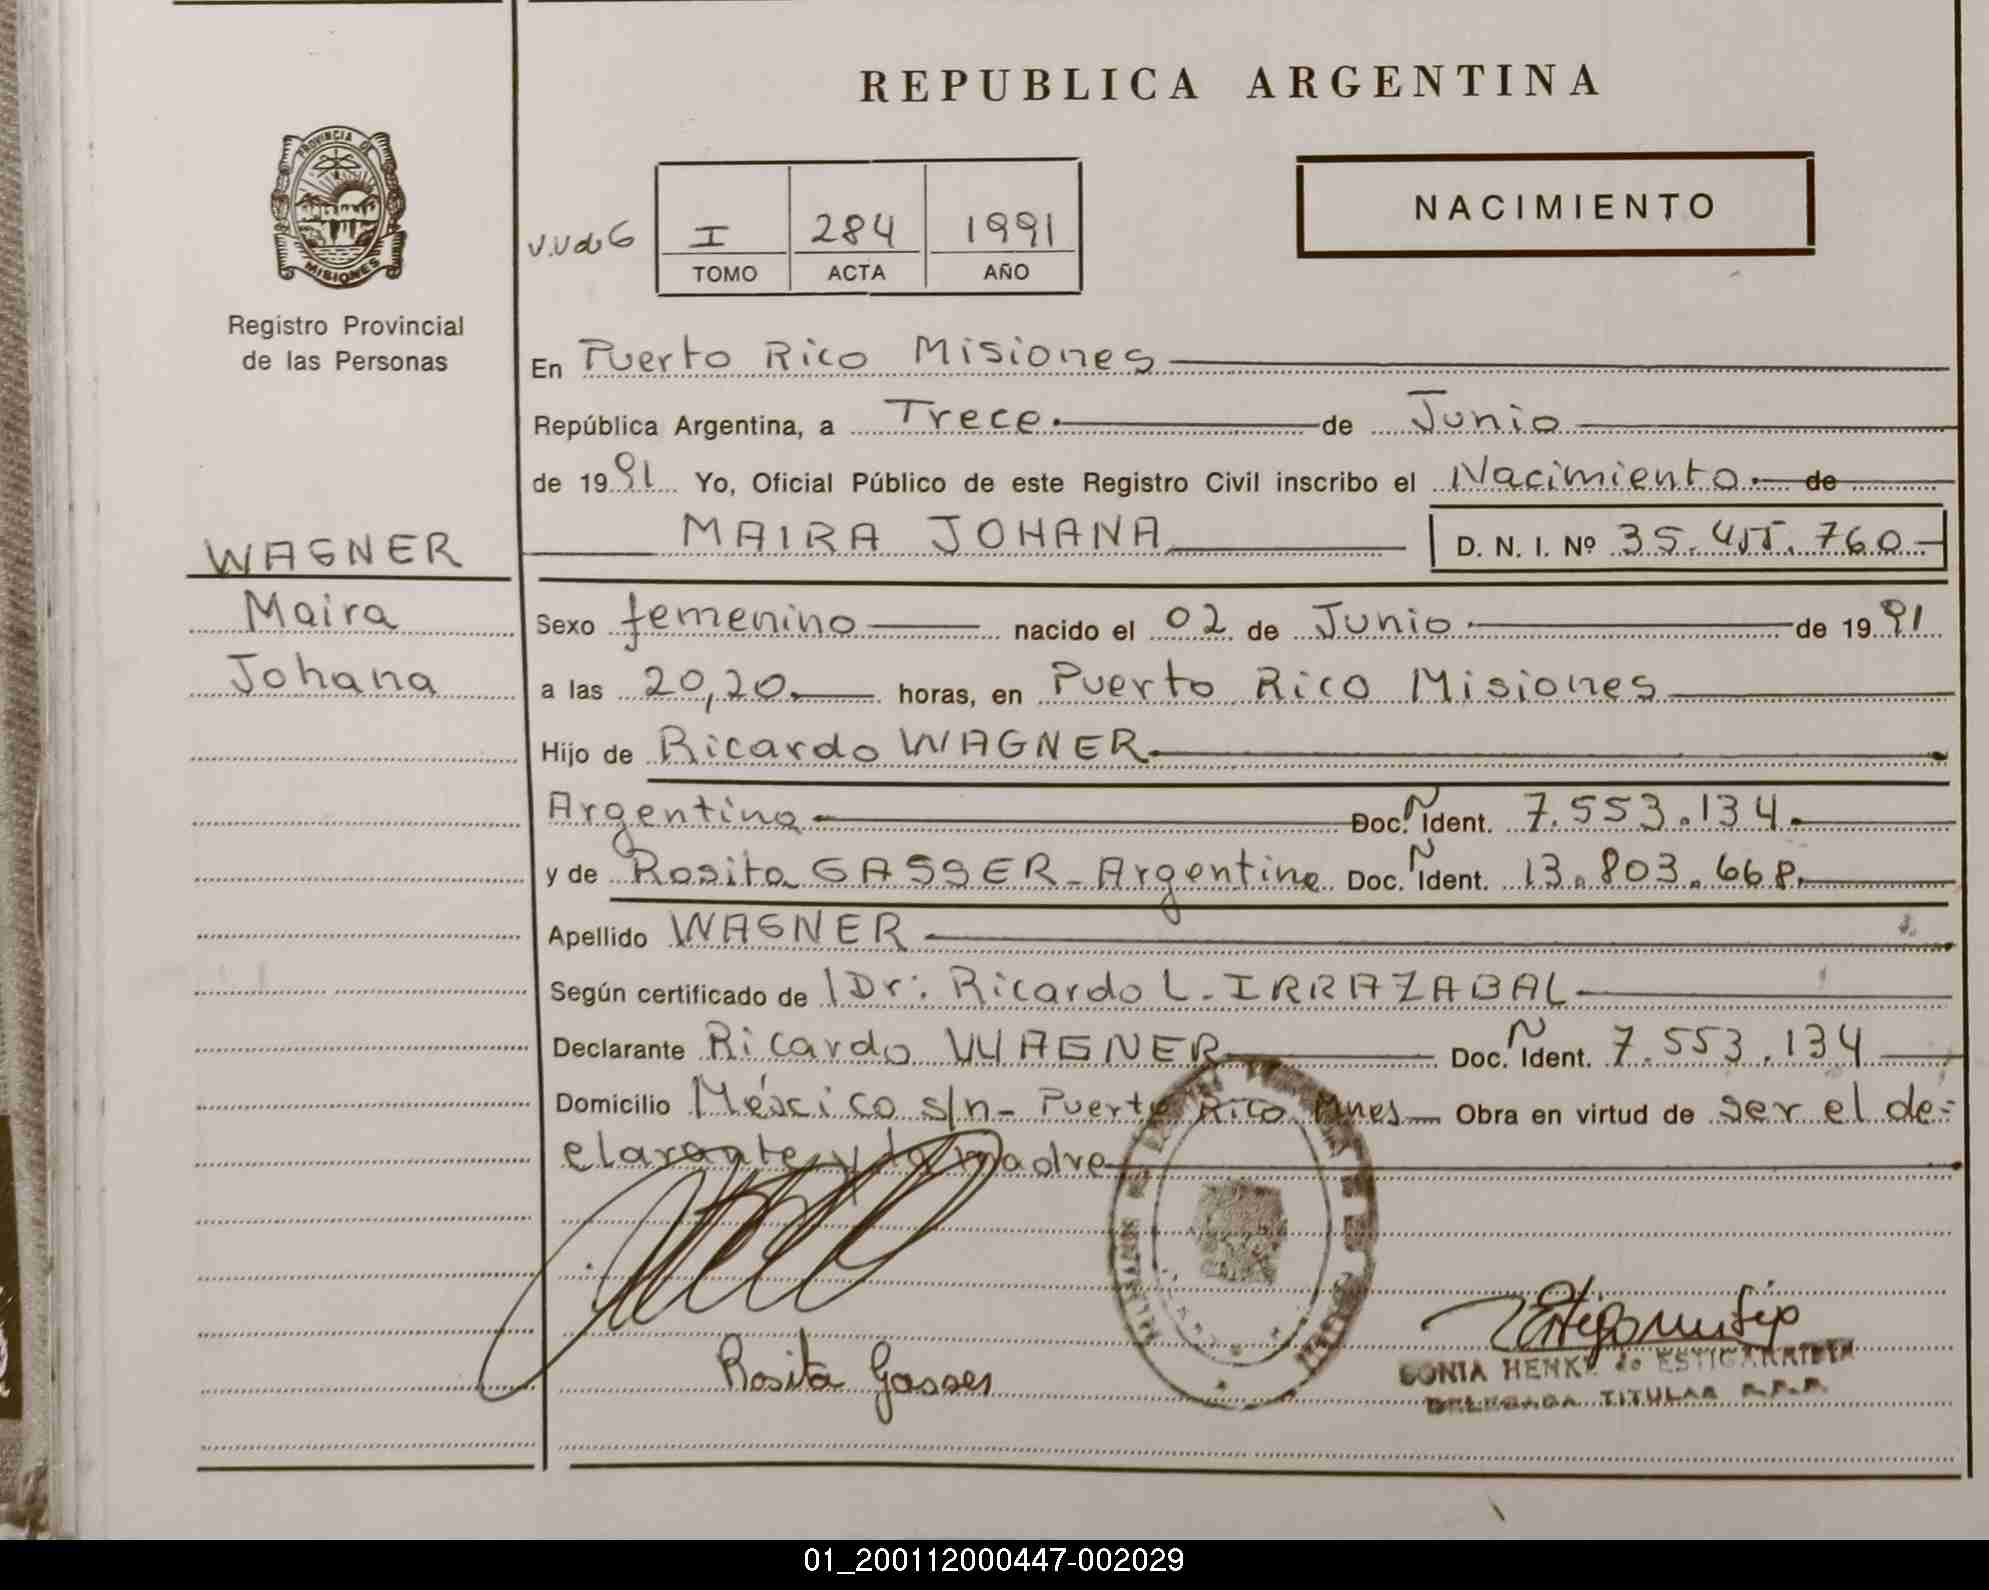 REPUBLICA ARGENTINA
PROVINCIA DE
MISIONES
Registro Provincial
de las Personas
NACIMIENTO
I 284 1991
TOMO ACTA AÑO
En Puerto Rico Misiones
República Argentina, a Trece de Junio
de 1991 Yo, Oficial Público de este Registro Civil inscribo el Nacimiento de
MAIRA JOHANA D. N. I. Nº 35.455.760
WAGNER
Maira
Johana
Sexo femenino nacido el 02 de Junio de 1991
a las 20,20 horas, en Puerto Rico Misiones
Hijo de Ricardo WAGNER
Argentino Doc. Ñ Ident. 7.553.134.
y de Rosita GASSER - Argentina Doc. Ñ Ident. 13.803.668.
Apellido WAGNER
Según certificado de Dr: Ricardo L. IRRAZABAL
Declarante Ricardo WAGNER Doc. Ñ Ident. 7.553.134
Domicilio México s/n - Puerto Rico Mnes Obra en virtud de ser el de-
clarante y la madre
Rosita Gasser
SONIA HENKY de ESTIGARRIBIA
DELEGADA TITULAR R.P.P.
01_200112000447-002029